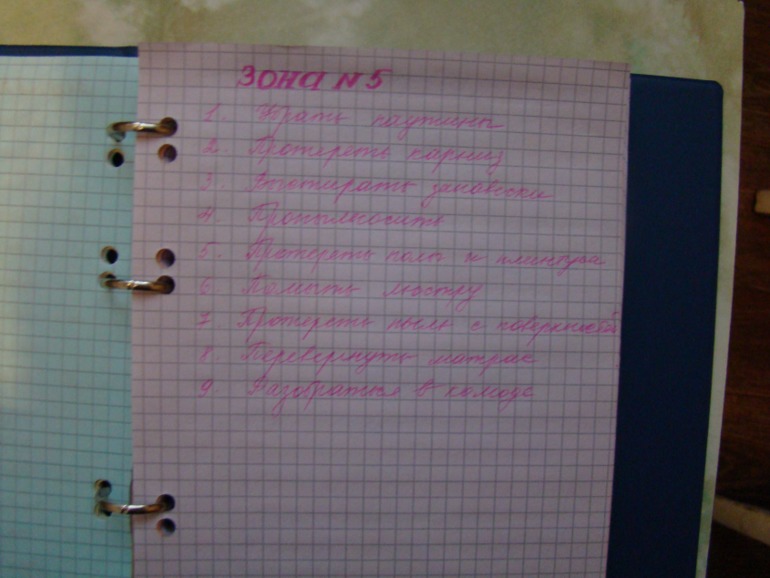 ЗОНА №5
1. Убрать паутины
2. Протереть карниз
3. Выстирать занавески
4. Пропылесосить
5. Протереть полы и плинтуса
6. Помыть люстру
7. Протереть пыль с поверхностей
8. Перевернуть матрас
9. Разобраться в комоде